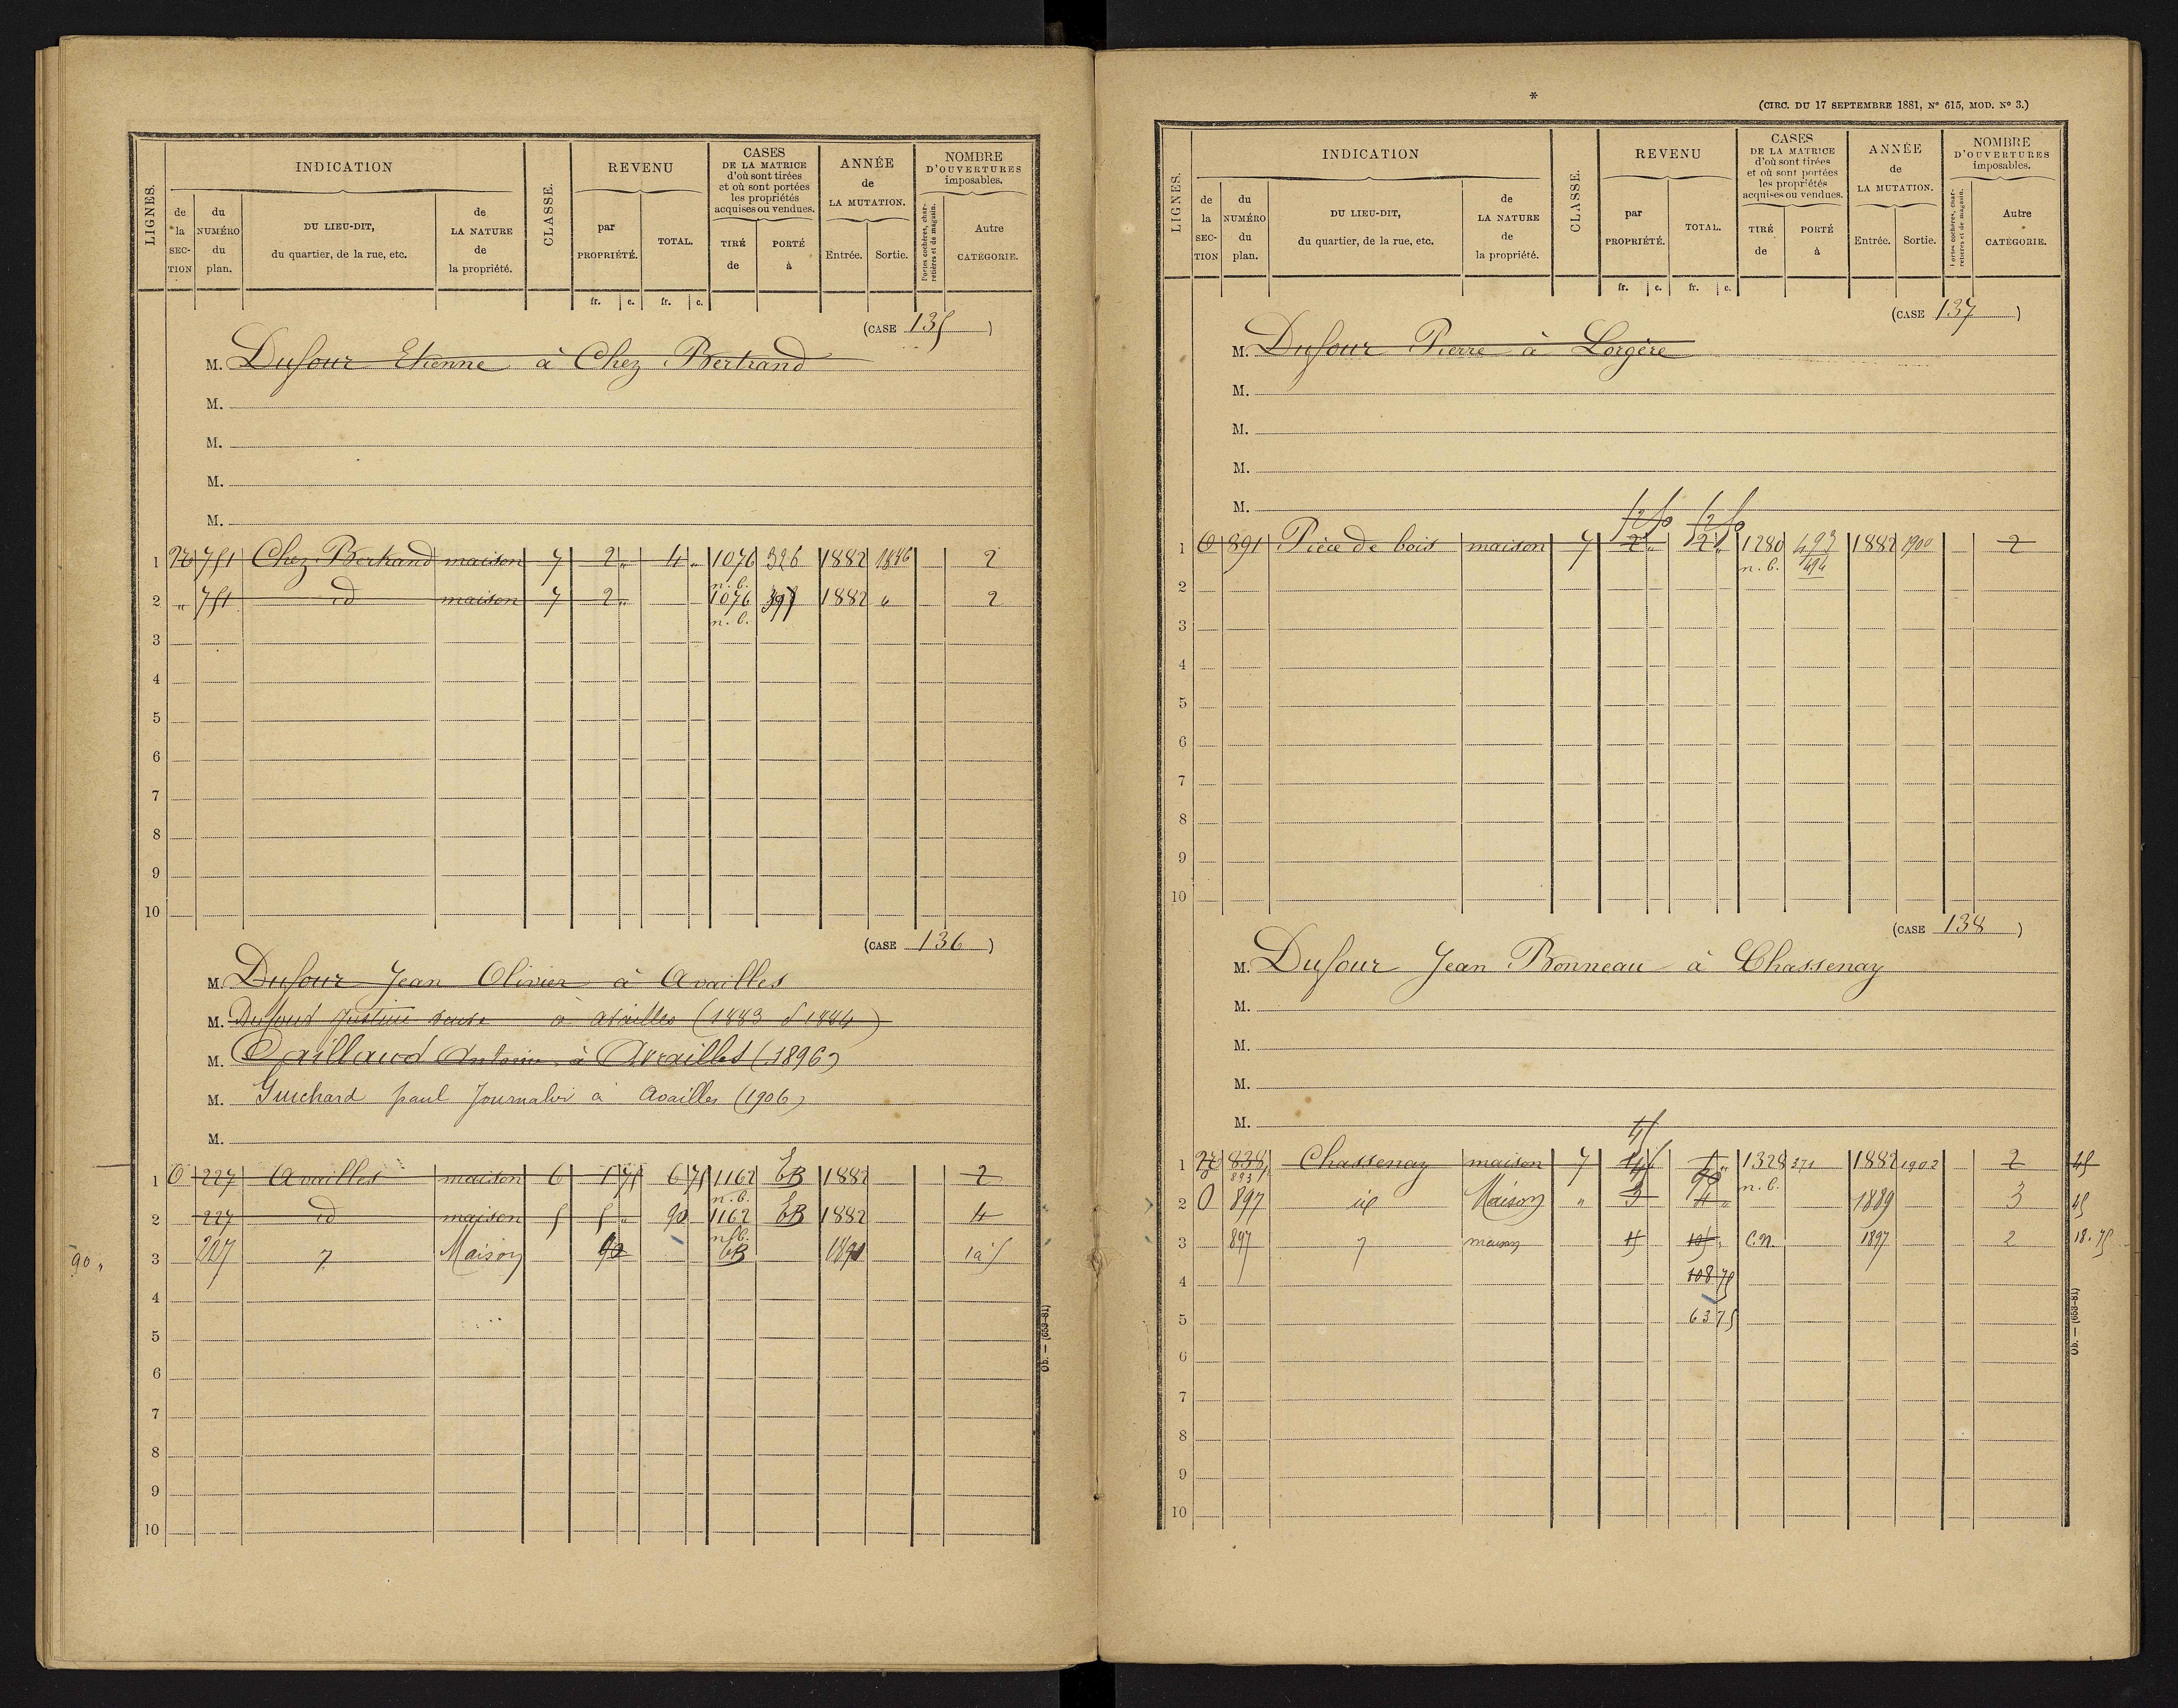 LIGNES. INDICATION CLASSE. REVENU CASES DE LA MATRICE d'où sont tirées et où sont portées les propriétés acquises ou vendues. ANNÉE de LA MUTATION. NOMBRE D'OUVERTURES imposables.
de la SECTION du NUMÉRO du plan. DU LIEU-DIT, du quartier, de la rue, etc. de LA NATURE de la propriété. par PROPRIÉTÉ. TOTAL. TIRÉ de PORTÉ à Entrée. Sortie. Portes cochères, charretières et de magasin. Autre CATÉGORIE.
fr. c. fr. c.
(CASE 135)
M. Dufour Etienne à Chez Bertrand
M.
M.
M.
M.
1 751 Chez Bertrand maison 7 2 „ 4 „ 1076 326 1882 1886 2
n. b.
2 „ 751 id maison 7 2 „ 1076 1882 „ 2
n. b.
3
4
5
6
7
8
9
10
(CASE 136)
M. Dufour Jean Olivier à Availles
M. Dufour Justin à Availles (1883
M. Antoine à Availles (1896)
M. Guichard paul Journalier à Availles (1906)
M.
1 O 227 Availles maison 6 1 75 6 75 1162 EB 1882 2
n. b.
2 227 id maison 5 5 „ 90 1162 EB 1882 4
n. b.
90 „ 3 227 7 Maison 90 EB 1à5
4
5
6
7
8
9
10
Ob. — (659-81)
*
(CIRC. DU 17 SEPTEMBRE 1881, N° 615, MOD. N° 3.)
LIGNES. INDICATION CLASSE. REVENU CASES DE LA MATRICE d'où sont tirées et où sont portées les propriétés acquises ou vendues. ANNÉE de LA MUTATION. NOMBRE D'OUVERTURES imposables.
de la SECTION du NUMÉRO du plan. DU LIEU-DIT, du quartier, de la rue, etc. de LA NATURE de la propriété. par PROPRIÉTÉ. TOTAL. TIRÉ de PORTÉ à Entrée. Sortie. Portes cochères, charretières et de magasin. Autre CATÉGORIE.
fr. c. fr. c.
(CASE 137)
M. Dufour Pierre à Lorgère
M.
M.
M.
M.
1 O 891 Pièce de bois maison 7 2 „ 2 „ 1280 493 1882 1900 2
n. b. 494
2
3
4
5
6
7
8
9
10
(CASE 138)
M. Dufour Jean Bonneau à Chassenay
M.
M.
M.
M.
45
1 838 Chassenay maison 7 1328 371 1882 1902 2 45
893 n. b.
2 O 897 id Maison „ 3 4 „ 1889 3 45
3 897 7 maison 15 105 „ C.N. 1897 2 18.75
4 108 75
5 63 75
6
7
8
9
10
Ob. — (659-81)